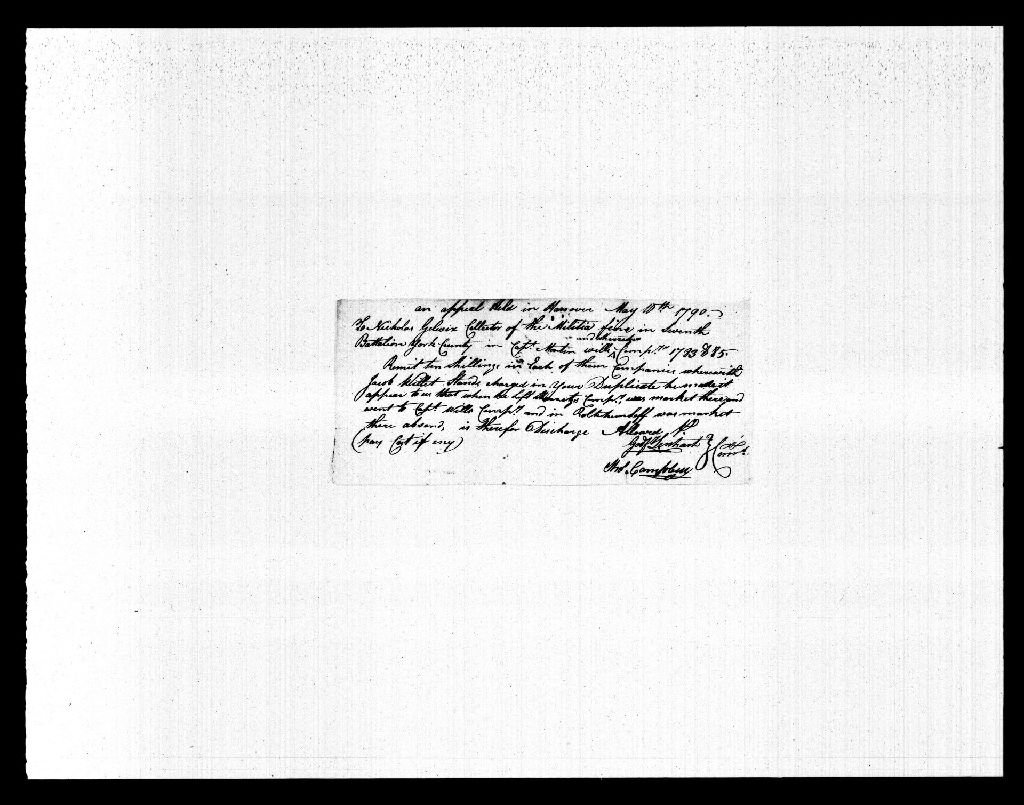 an appeal Held in Hanover May 18th 1790.
To Nicholas Gelwix Collector of the Militia fine in Seventh
Battalion York County in Capt. Martin and wills Comp.s 1783 & 85.
Remit ten shillings in Each of them Companies wherewith
Jacob Willet Stands charged in Your Duplicate he makes it
appear to us that when he Left Comp.y was market there and
went to Capt. Wills Comp.y and in was market
there absend, is therefor Discharge
(pay Cost if eny)